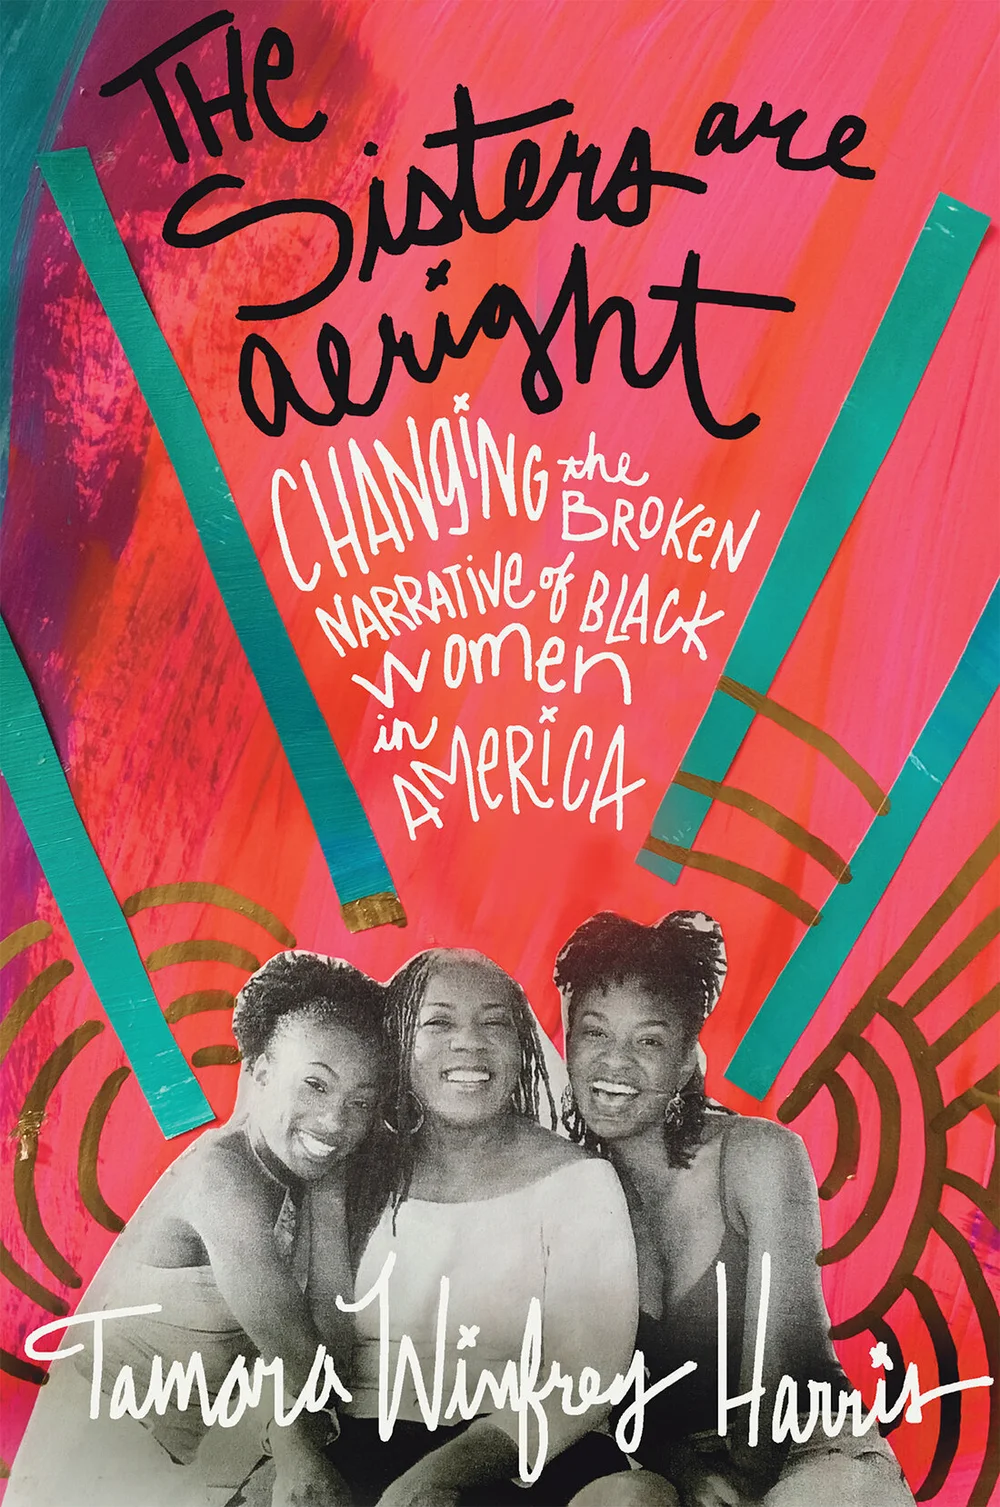 THe
Sisters are
alright
CHANgiNG the
BROKeN
NARRATive of BLACK
women
in
AMeRiCA
Tamara Winfrey Harris